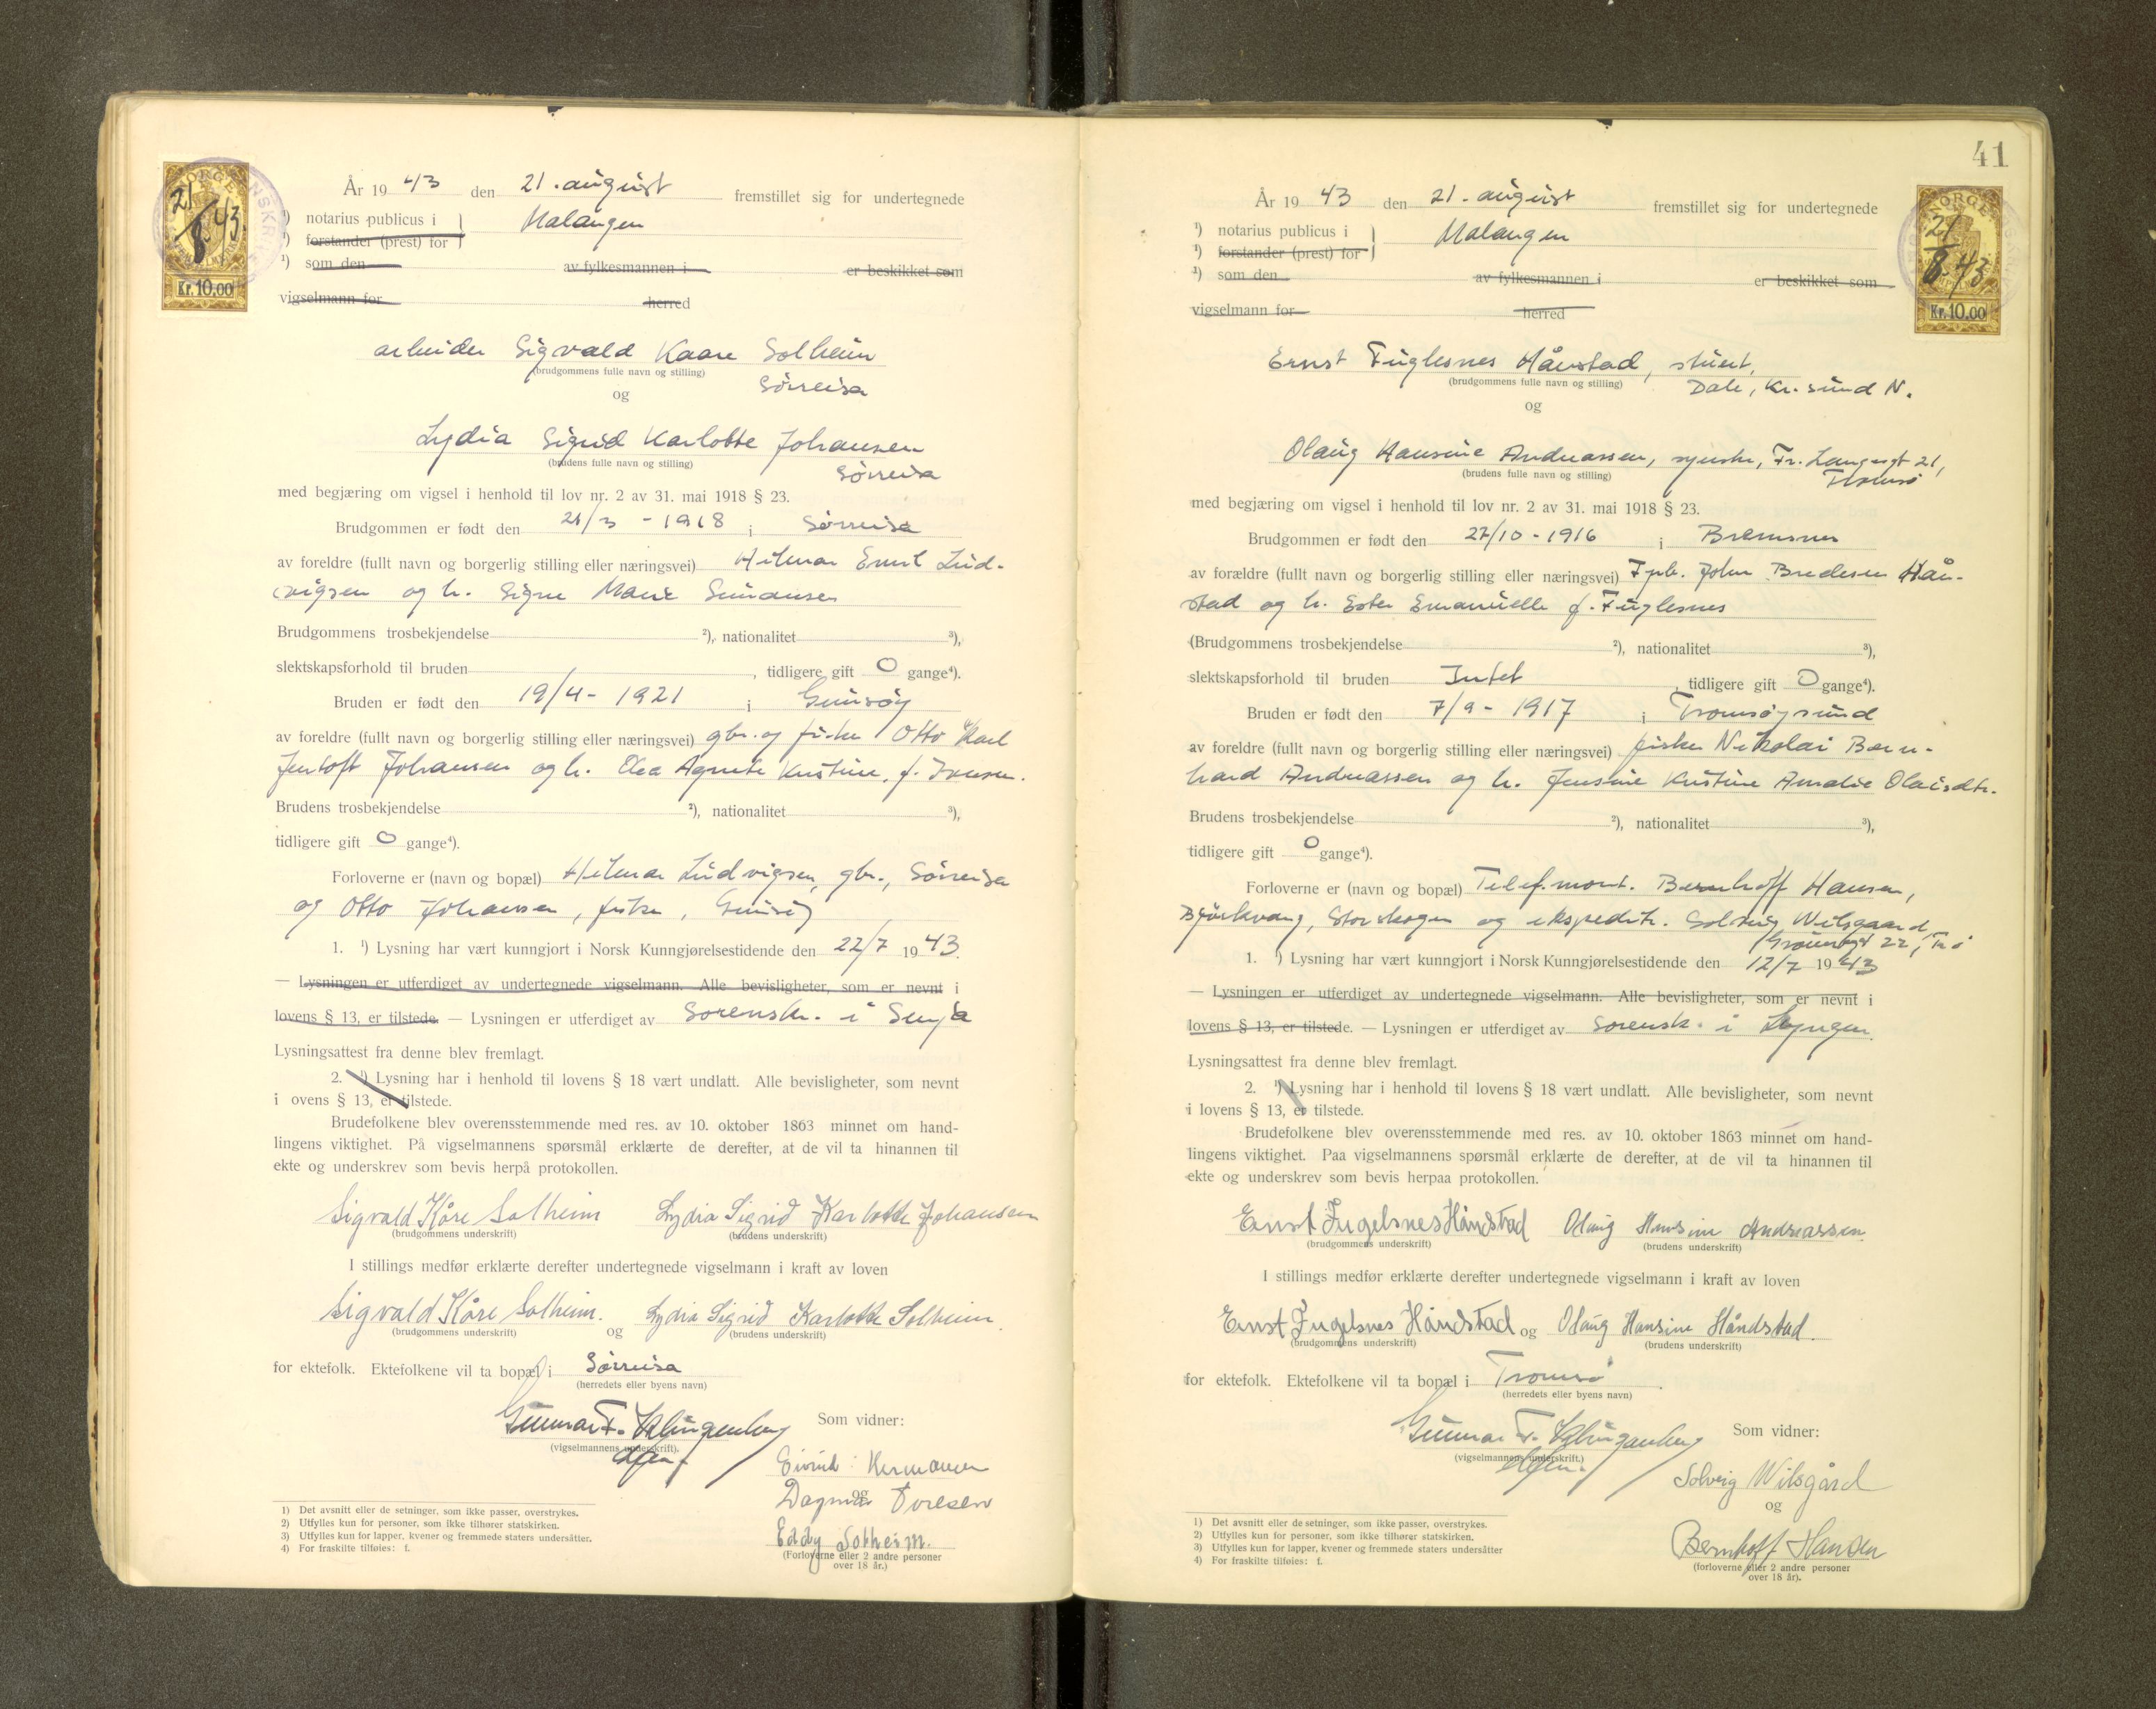 NORGE
21/8 43.
Kr. 10.00
År 1943 den 21. august fremstillet sig for undertegnede
¹) notarius publicus i Malangen
¹) forstander (prest) for
¹) som den av fylkesmannen i er beskikket som
vigselmann for herred
arbeider Sigvald Kaare Solheim
(brudgommens fulle navn og stilling)
Sörreisa
og
Lydia Sigrid Karlotte Johansen
(brudens fulle navn og stilling)
Sörreisa
med begjæring om vigsel i henhold til lov nr. 2 av 31. mai 1918 § 23.
Brudgommen er født den /3 - 1918 i Sörreisa
av foreldre (fullt navn og borgerlig stilling eller næringsvei) Hilmar Emil Lud-
vigsen og h. Signe Marie
Brudgommens trosbekjendelse ²), nationalitet ³),
slektskapsforhold til bruden , tidligere gift 0 gange⁴).
Bruden er født den 19/4 - 1921 i Gimsöy
av foreldre (fullt navn og borgerlig stilling eller næringsvei) gbr. og fisker Otto Karl
Jentoft Johansen og h. Agnete Kristine, f. Jensen.
Brudens trosbekjendelse ²), nationalitet ³),
tidligere gift 0 gange⁴).
Forloverne er (navn og bopæl) Hilmar Ludvigsen, gbr., Sörreisa
og Otto Johansen, fisker, Gimsöy
1. ¹) Lysning har vært kunngjort i Norsk Kunngjørelsestidende den 22/7 1943.
— Lysningen er utferdiget av undertegnede vigselmann. Alle bevisligheter, som er nevnt i
lovens § 13, er tilstede. — Lysningen er utferdiget av Sorenskr. i Senja
Lysningsattest fra denne blev fremlagt.
2. ¹) Lysning har i henhold til lovens § 18 vært undlatt. Alle bevisligheter, som nevnt
i ovens § 13, er tilstede.
Brudefolkene blev overensstemmende med res. av 10. oktober 1863 minnet om hand-
lingens viktighet. På vigselmannens spørsmål erklærte de derefter, at de vil ta hinannen til
ekte og underskrev som bevis herpå protokollen.
Sigvald Kåre Solheim Lydia Sigrid Karlotte Johansen
(brudgommens underskrift) (brudens underskrift)
I stillings medfør erklærte derefter undertegnede vigselmann i kraft av loven
Sigvald Kåre Solheim. og Lydia Sigrid Karlotte Solheim.
(brudgommens underskrift) (brudens underskrift)
for ektefolk. Ektefolkene vil ta bopæl i Sörreisa
(herredets eller byens navn)
Gunnar F. Klingenberg Som vidner:
(vigselmannens underskrift).
Eivind Hermansen
og
Dagmar Toresen
Eddy Solheim.
(Forloverne eller 2 andre personer
over 18 år.)
1) Det avsnitt eller de setninger, som ikke passer, overstrykes.
2) Utfylles kun for personer, som ikke tilhører statskirken.
3) Utfylles kun for lapper, kvener og fremmede staters undersåtter.
4) For fraskilte tilføies: f.
41
NORGE
21/8 43
Kr. 10.00
År 1943 den 21. august fremstillet sig for undertegnede
¹) notarius publicus i Malangen
¹) forstander (prest) for
¹) som den av fylkesmannen i er beskikket som
vigselmann for herred
Ernst Fuglesnes Hånstad, stuert,
(brudgommens fulle navn og stilling)
Dale, Kr.sund N.
og
Olaug Hansine Andreassen, syerske, Fr. Langesgt 21,
(brudens fulle navn og stilling)
Tromsö
med begjæring om vigsel i henhold til lov nr. 2 av 31. mai 1918 § 23.
Brudgommen er født den 27/10 - 1916 i Bremsnes
av forældre (fullt navn og borgerlig stilling eller næringsvei) Fpb. John Bredesen Hån-
stad og h. Ester Emanuelle f. Fuglesnes
(Brudgommens trosbekjendelse ²), nationalitet ³),
slektskapsforhold til bruden Intet , tidligere gift 0 gange⁴).
Bruden er født den 7/9 - 1917 i Tromsöysund
av foreldre (fullt navn og borgerlig stilling eller næringsvei) fisker Nikolai Bern-
hard Andreassen og h. Jensine Kristine Amalie Olaisdtr.
Brudens trosbekjendelse ²), nationalitet ³),
tidligere gift 0 gange⁴).
Forloverne er (navn og bopæl) Telef.mont. Bernhoff Hansen,
Bjørkvang, Storskogen og ekspeditr. Solveig Wilsgaard,
Grönnegt 22, Trö
1. ¹) Lysning har vært kunngjort i Norsk Kunngjørelsestidende den 12/7 1943
— Lysningen er utferdiget av undertegnede vigselmann. Alle bevisligheter, som er nevnt i
lovens § 13, er tilstede. — Lysningen er utferdiget av Sorensk. i Lyngen.
Lysningsattest fra denne blev fremlagt.
2. ¹) Lysning har i henhold til lovens § 18 vært undlatt. Alle bevisligheter, som nevnt
i lovens § 13, er tilstede.
Brudefolkene blev overensstemmende med res. av 10. oktober 1863 minnet om hand-
lingens viktighet. Paa vigselmannens spørsmål erklærte de derefter, at de vil ta hinannen til
ekte og underskrev som bevis herpaa protokollen.
Ernst Fugelsnes Håndstad Olaug Hansine Andreassen.
(brudgommens underskrift) (brudens underskrift)
I stillings medfør erklærte derefter undertegnede vigselmann i kraft av loven
Ernst Fugelsnes Håndstad og Olaug Hansine Håndstad.
(brudgommens underskrift) (brudens underskrift)
for ektefolk. Ektefolkene vil ta bopæl i Tromsö
(herredets eller byens navn)
Gunnar F. Klingenberg Som vidner:
(vigselmannens underskrift.)
Solveig Wilsgård
og
Bernhoff Hansen
(forloverne eller 2 andre personer
over 18 år).
1) Det avsnitt eller de setninger, som ikke passer, overstrykes.
2) Utfylles kun for personer, som ikke tilhører statskirken.
3) Utfylles kun for lapper, kvener og fremmede staters undersåtter
4) For fraskilte tilføies: f.